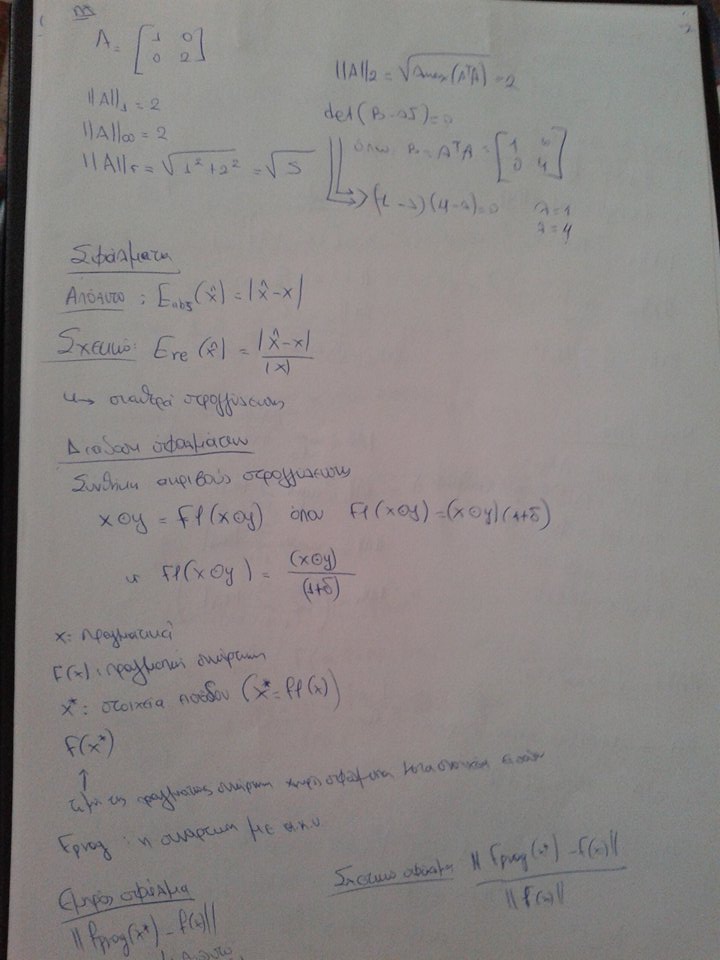 A = [ 1 0
0 2 ]
||A||₁ = 2
||A||∞ = 2
||A||F = √(1² + 2²) = √5
||A||₂ = √(λmax(AᵀA)) = 2
det(B - λI) = 0
όπου B = AᵀA = [ 1 0
0 4 ]
(1 - λ)(4 - λ) = 0 λ = 1
λ = 4
Σφάλματα
Απόλυτο: Eabs(x̂) = |x̂ - x|
Σχετικό: Ere(x̂) = |x̂ - x| / |x|
↳ σταθερά στρογγύλευσης
Διάδοση σφαλμάτων
Συνθήκη ακριβούς στρογγύλευσης
x⊙y = Fl(x⊙y) όπου Fl(x⊙y) = (x⊙y)(1+δ)
ή Fl(x⊙y) = (x⊙y) / (1+δ)
x: πραγματικά
F(x): πραγματική συνάρτηση
x*: στοιχεία (x* = fl(x))
f(x*)
↑
τιμή της πραγματικής συνάρτησης χωρίς σφάλματα
Fprog: η συνάρτηση με α.κ.υ
Εμπρός σφάλμα
||Fprog(x*) - f(x)||
Σχετικό σφάλμα ||Fprog(x*) - f(x)|| / ||f(x)||